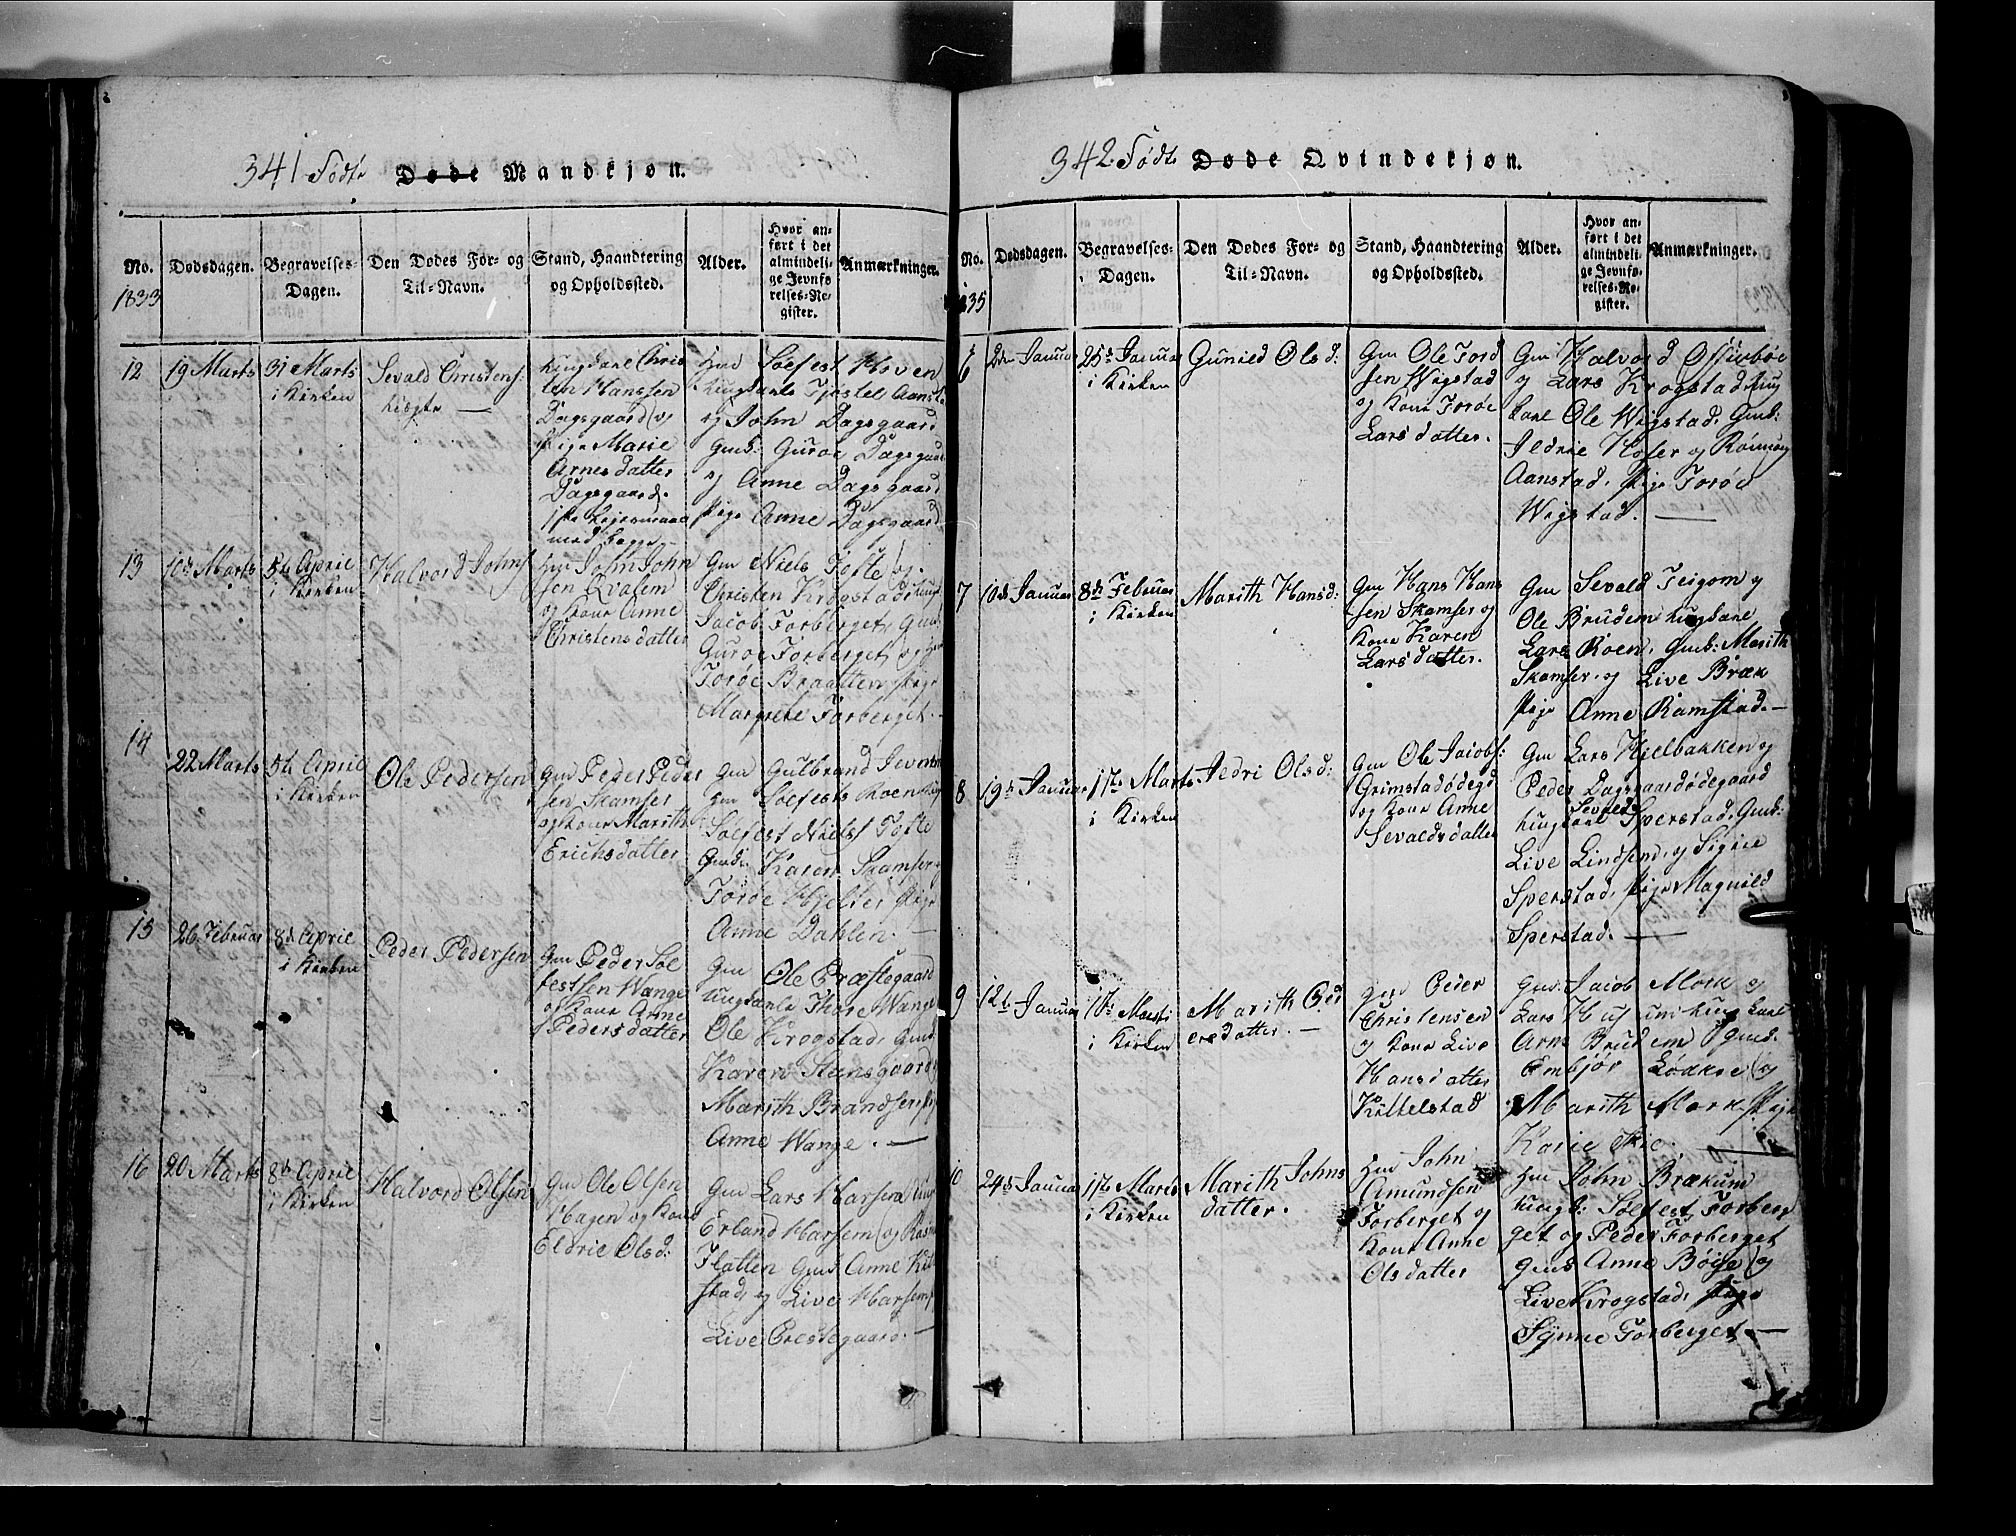 341 Födte Døde Mandkjøn.
No.
1833
Dødsdagen.
Begravelses-
Dagen.
Den Dødes For- og
Til-Navn.
Stand, Haandtering
og Opholdssted.
Alder.
Hvor an-
ført i det
almindeli-
ge Jevnfø-
relses-Re-
gister.
Anmærkninger.
12
19 Marts
31 Marts
i Kirken
Sevald Christens:
uægte —
Ungkarl Chris
ten Hanssen
Dagsgaard og
Pige Marie
Arnesdatter
Dagsgaard.
1ste Leiermaal
med begge —
Solfest Hoven
Ungkarle Tjøstel Aansta
og John Dagsgaard
Gmd: Guroe Dagsgaar
og Anne Dagsgaard
Pige Anne Dagsgaard
13
10de Marts
5te April
i Kirken
Halvord Johns
John John
sen Qvalem
og Kone Anne
Christensdatter
Gm Niels Tofte og
Christen Krogstad, Ungk
Jacob Forberget, Gmd
Guroe Forberget, og
Toröe Braatten, Pige
Margrete Forberget. —
14
22 Marts
5te April
i Kirken
Ole Pedersen
Gm Peder Peder
sen Skamser
og Kone Marith
Erichsdatter
Gm Gulbrand
Solfest Roen
Solfest Niels: Tofte
Gmd: Karen Skamser
Toröe Hjelter Pige
Anne Dahlen. —
15
26 Februar
8de April
i Kirken
Peder Pedersen
Gm Peder Sol
festsen Wange
og Kone Anne
Pedersdatter
Gm Ole Præstegaard
Ungkarle Thore Wange
Ole Krogstad, Gmd
Karen Stensgaard
Marith Brandser
Anne Wange. —
16
20 Marts
8de April
i Kirken
Halvord Olsen
Gm Ole Olsen
Hagen og Kone
Eldrie Olsd:
Gm Lars Harsem Ung
Erland Harsem og
Flatten Gmd Anne
stad, og Live Harsem
Live Prestegaard. —
342 Födte Døde Qvindekjøn.
No.
1835
Dødsdagen.
Begravelses-
Dagen.
Den Dødes For- og
Til-Navn.
Stand, Haandtering
og Opholdssted.
Alder.
Hvor an-
ført i det
almindeli-
ge Jevnfø-
relses-Re-
gister.
Anmærkninger.
6
2den Januar
25de Januar
i Kirken
Gunild Olsd:
Gm Ole Tord
sen Wigstad
og Kone Toröe
Larsdatter.
Gm Halvord
og Lars Krogstad, Ung
karl Ole Wigstad, Gmd:
Jldrie Hofer og Rönnoug
Aanstad, Pige Toröe
Wigstad. —
7
10de Januar
8de Februar
i Kirken
Marith Hansd:
Gm Hans Hans
sen Skamser og
Kone Karen
Larsdatter.
Gm Sevald Feigom og
Ole Brudem Ungkarl
Lars Roen, Gmd: Marith
Skamser, og Live Bræk
Pige Anne Ramstad. —
8
19de Januar
1ste Marts
i Kirken
Jedri Olsd:
Gm Ole Jacobs:
Grimstadödegd
og Kone Anne
Sevaldsdatter
Gm Lars Hjelbakken og
Peder Dagsgaardödegaard
Ungkarl Sevald Sperstad, Gmd:
Live Lindsem, og Sigrie
Sperstad, Pige Magnild
Sperstad. —
9
12te Januar
1ste Marts
i Kirken
Marith Ped
ersdatter. —
Gm Peder
Christensen
og Kone Live
Hansdatter
Kittelstad
Gm: Jacob Mork og
Lars Ungkarl
Arne Brudem Gmd:
Embjör Lödkse og
Marith Mork, Pige
Karie
10
24de Januar
1ste Marts
i Kirken
Marith Johns
datter.
John
Amundsen
Forberget og
Kone Anne
Olsdatter
John Brækum
Ungk: Solfest Forberg
get og Peder Forberget
Gmd Anne Böye og
Live Krogstad, Pige
Synne Forberget —